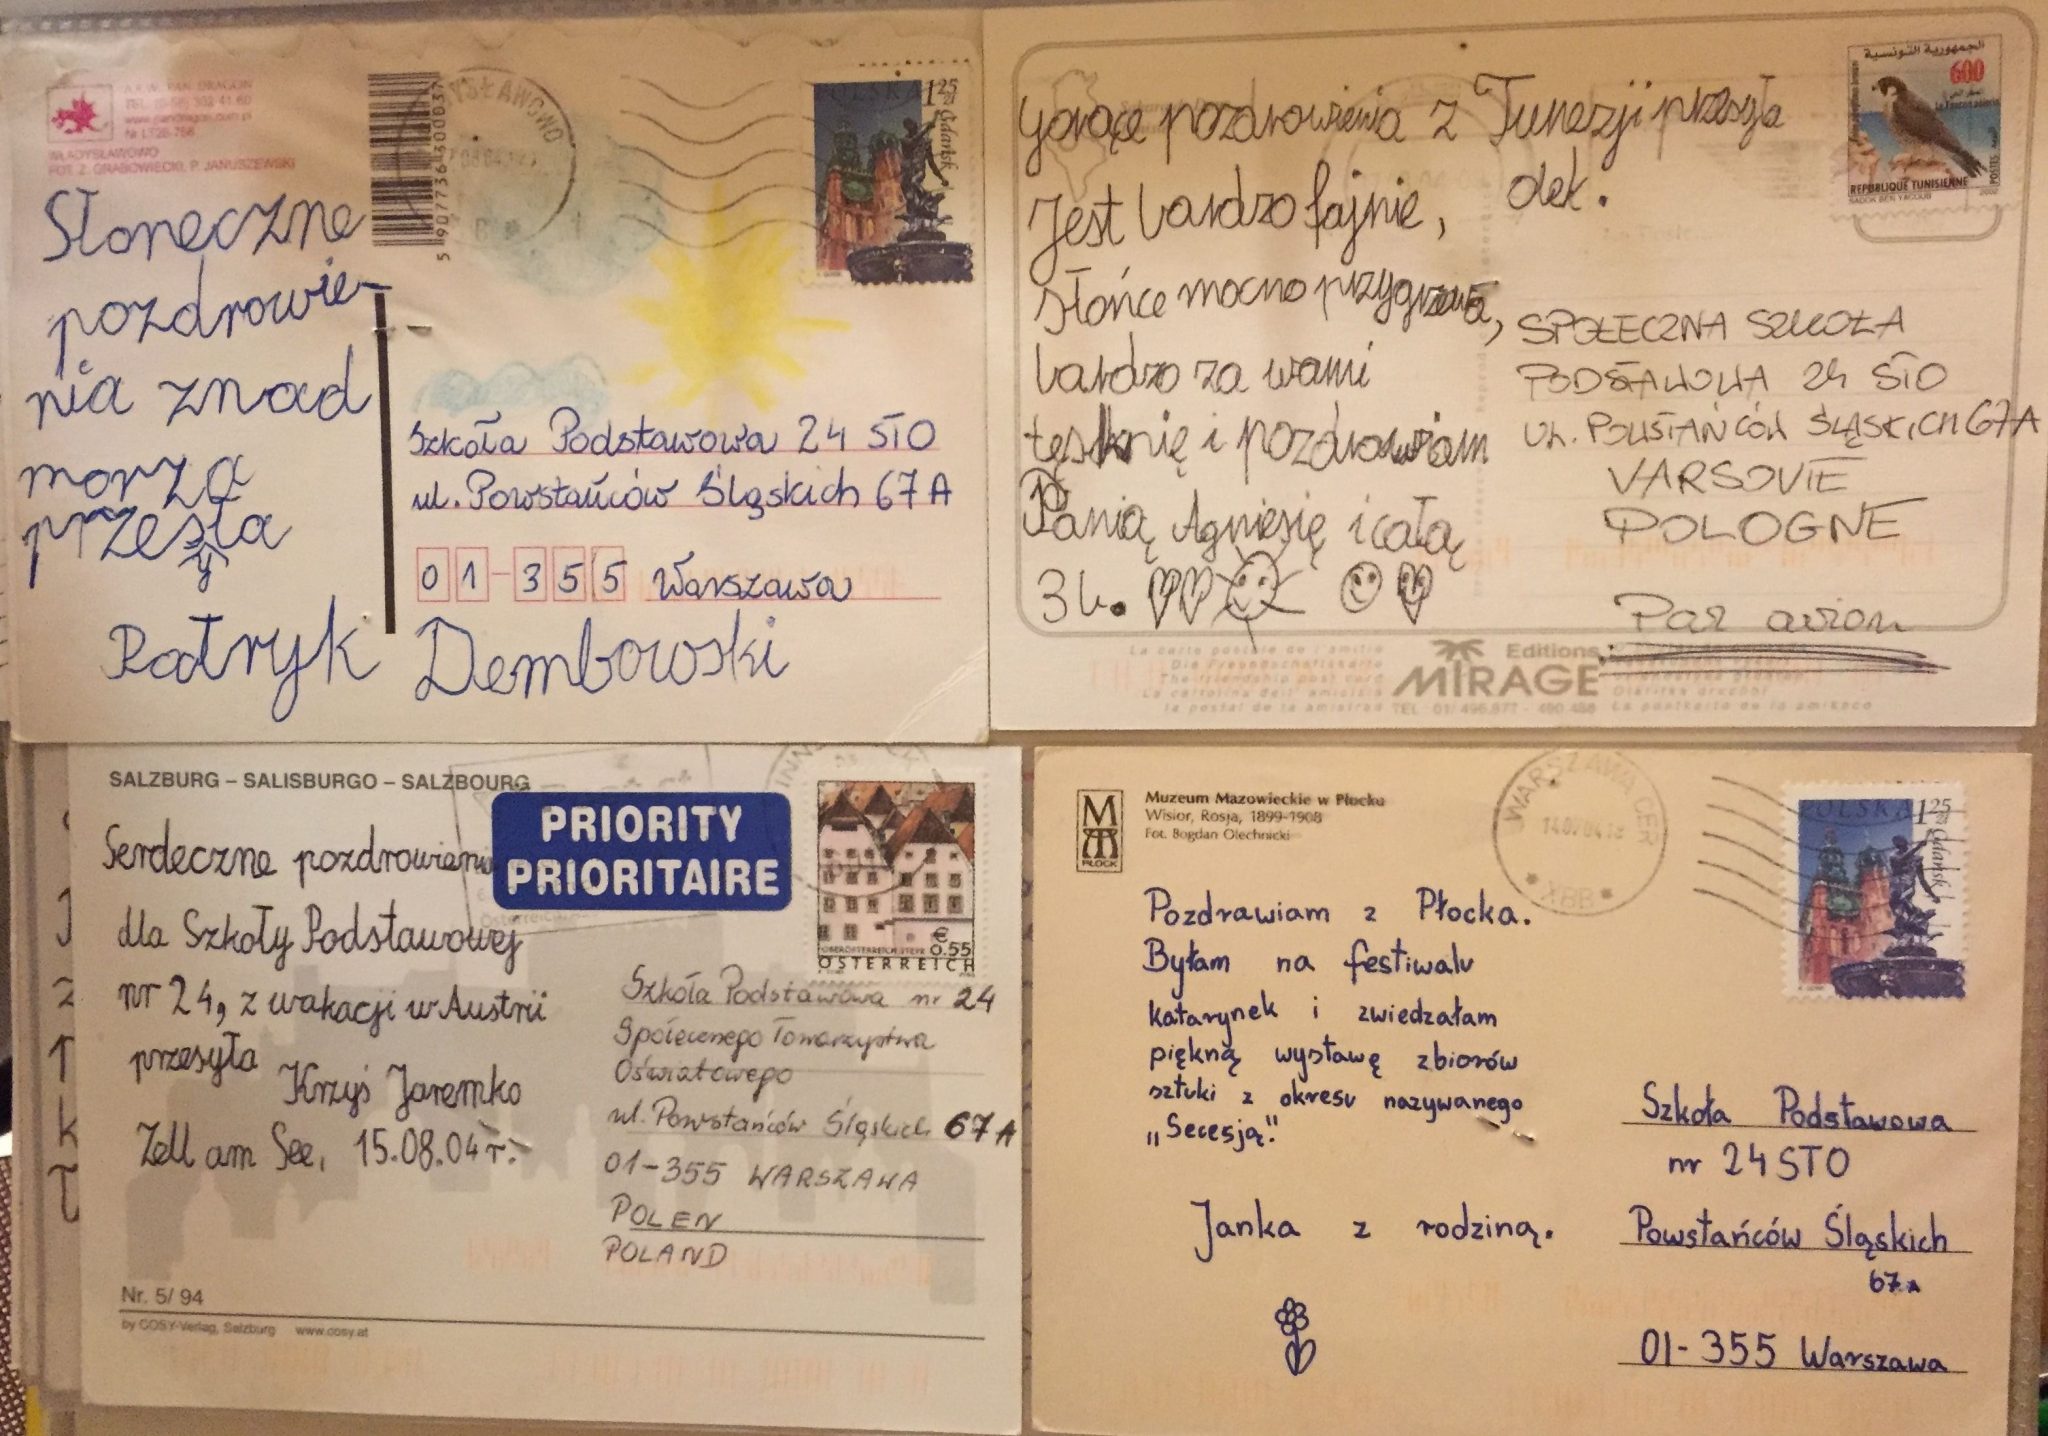 A.F.W. "PAN DRAGON"
TEL. (0-58) 302 41 60
www.pandragon.com.pl
Nr LT28-756
WŁADYSŁAWOWO
FOT. Z. GRABOWIECKI, P. JANUSZEWSKI
5 907736 300037
POLSKA 1 25 ZŁ
Gdańsk
Słoneczne
pozdrowie-
nia znad
morza
przesła
y
Patryk Dembowski
Szkoła Podstawowa 24 STO
ul. Powstańców Śląskich 67A
01-355 Warszawa
Gorące pozdrowienia z Tunezji przesyła
Olek.
Jest bardzo fajnie,
słońce mocno przygrzewa,
bardzo za wami
tęsknię i pozdrawiam
Panią Agniesię i całą
3b.
الجمهورية التونسية
600
REPUBLIQUE TUNISIENNE
SPOŁECZNA SZKOŁA
PODSTAWOWA 24 STO
UL. POWSTAŃCÓW ŚLĄSKICH 67A
VARSOVIE
POLOGNE
Par avion
Editions
MIRAGE
SALZBURG – SALISBURGO – SALZBOURG
PRIORITY
PRIORITAIRE
€
0.55
ÖSTERREICH
Serdeczne pozdrowienia
dla Szkoły Podstawowej
nr 24, z wakacji w Austrii
przesyła
Krzyś Jaremko
Zell am See, 15.08.04 r.
Szkoła Podstawowa nr 24
Społecznego Towarzystwa
Oświatowego
ul. Powstańców Śląskich 67A
01-355 WARSZAWA
POLEN
POLAND
Nr. 5/ 94
by COSY-Verlag, Salzburg www.cosy.at
M
PŁOCK
Muzeum Mazowieckie w Płocku
Wisior, Rosja, 1899-1908
Fot. Bogdan Olechnicki
WARSZAWA CER
XBB
POLSKA 1 25 ZŁ
Gdańsk
Pozdrawiam z Płocka.
Byłam na festiwalu
katarynek i zwiedzałam
piękną wystawę zbiorów
sztuki z okresu nazywanego
„Secesją".
Janka z rodziną.
Szkoła Podstawowa
nr 24 STO
Powstańców Śląskich
67A
01-355 Warszawa